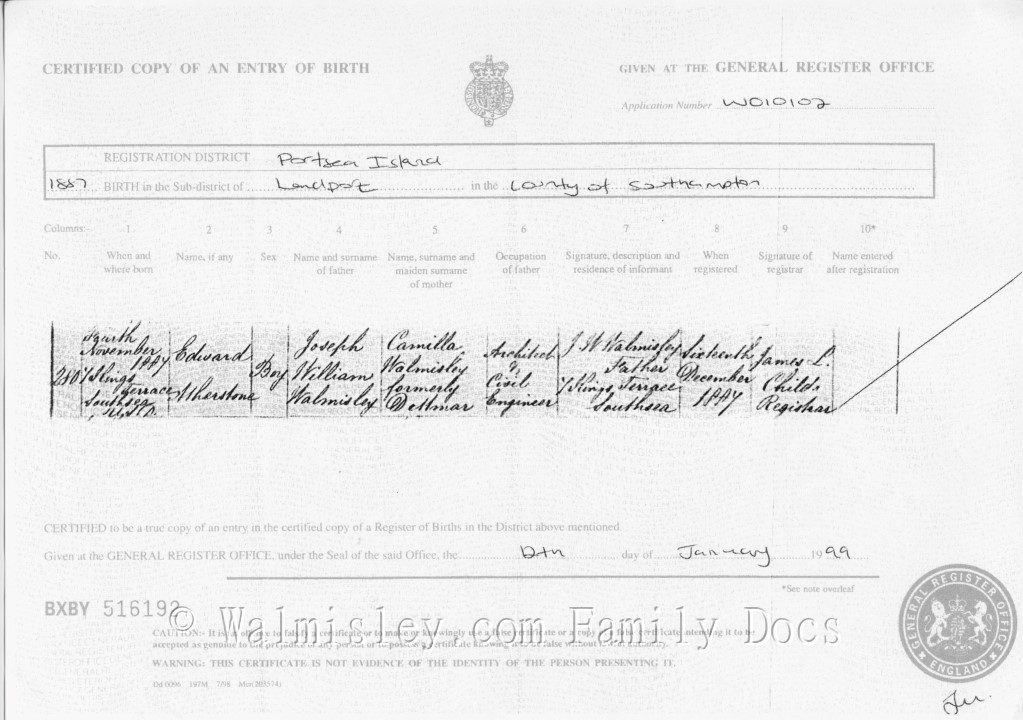 CERTIFIED COPY OF AN ENTRY OF BIRTH
GIVEN AT THE GENERAL REGISTER OFFICE
Application Number W010102
REGISTRATION DISTRICT Portsea Island
1887 BIRTH in the Sub-district of Landport in the County of Southampton
Columns:- 1 2 3 4 5 6 7 8 9 10*
No. When and where born Name, if any Sex Name and surname of father Name, surname and maiden surname of mother Occupation of father Signature, description and residence of informant When registered Signature of registrar Name entered after registration
Fourth November 1887 7 Kings Terrace Southsea
Edward Atherstone
Boy
Joseph William Walmisley
Camilla Walmisley formerly Dettmar
Architect & Civil Engineer
J W Walmisley Father 7 Kings Terrace Southsea
Sixteenth December 1887
James L. Childs Registrar
CERTIFIED to be a true copy of an entry in the certified copy of a Register of Births in the District above mentioned.
Given at the GENERAL REGISTER OFFICE, under the Seal of the said Office, the day of January 1999
*See note overleaf
BXBY 516192
© Walmisley.com Family Docs
CAUTION:- It is an offence to falsify a certificate or to make or knowingly use a false certificate or a copy of a false certificate intending it to be
accepted as genuine to the prejudice of any person or to possess a certificate knowing it to be false without lawful authority.
WARNING: THIS CERTIFICATE IS NOT EVIDENCE OF THE IDENTITY OF THE PERSON PRESENTING IT.
GENERAL REGISTER OFFICE
ENGLAND